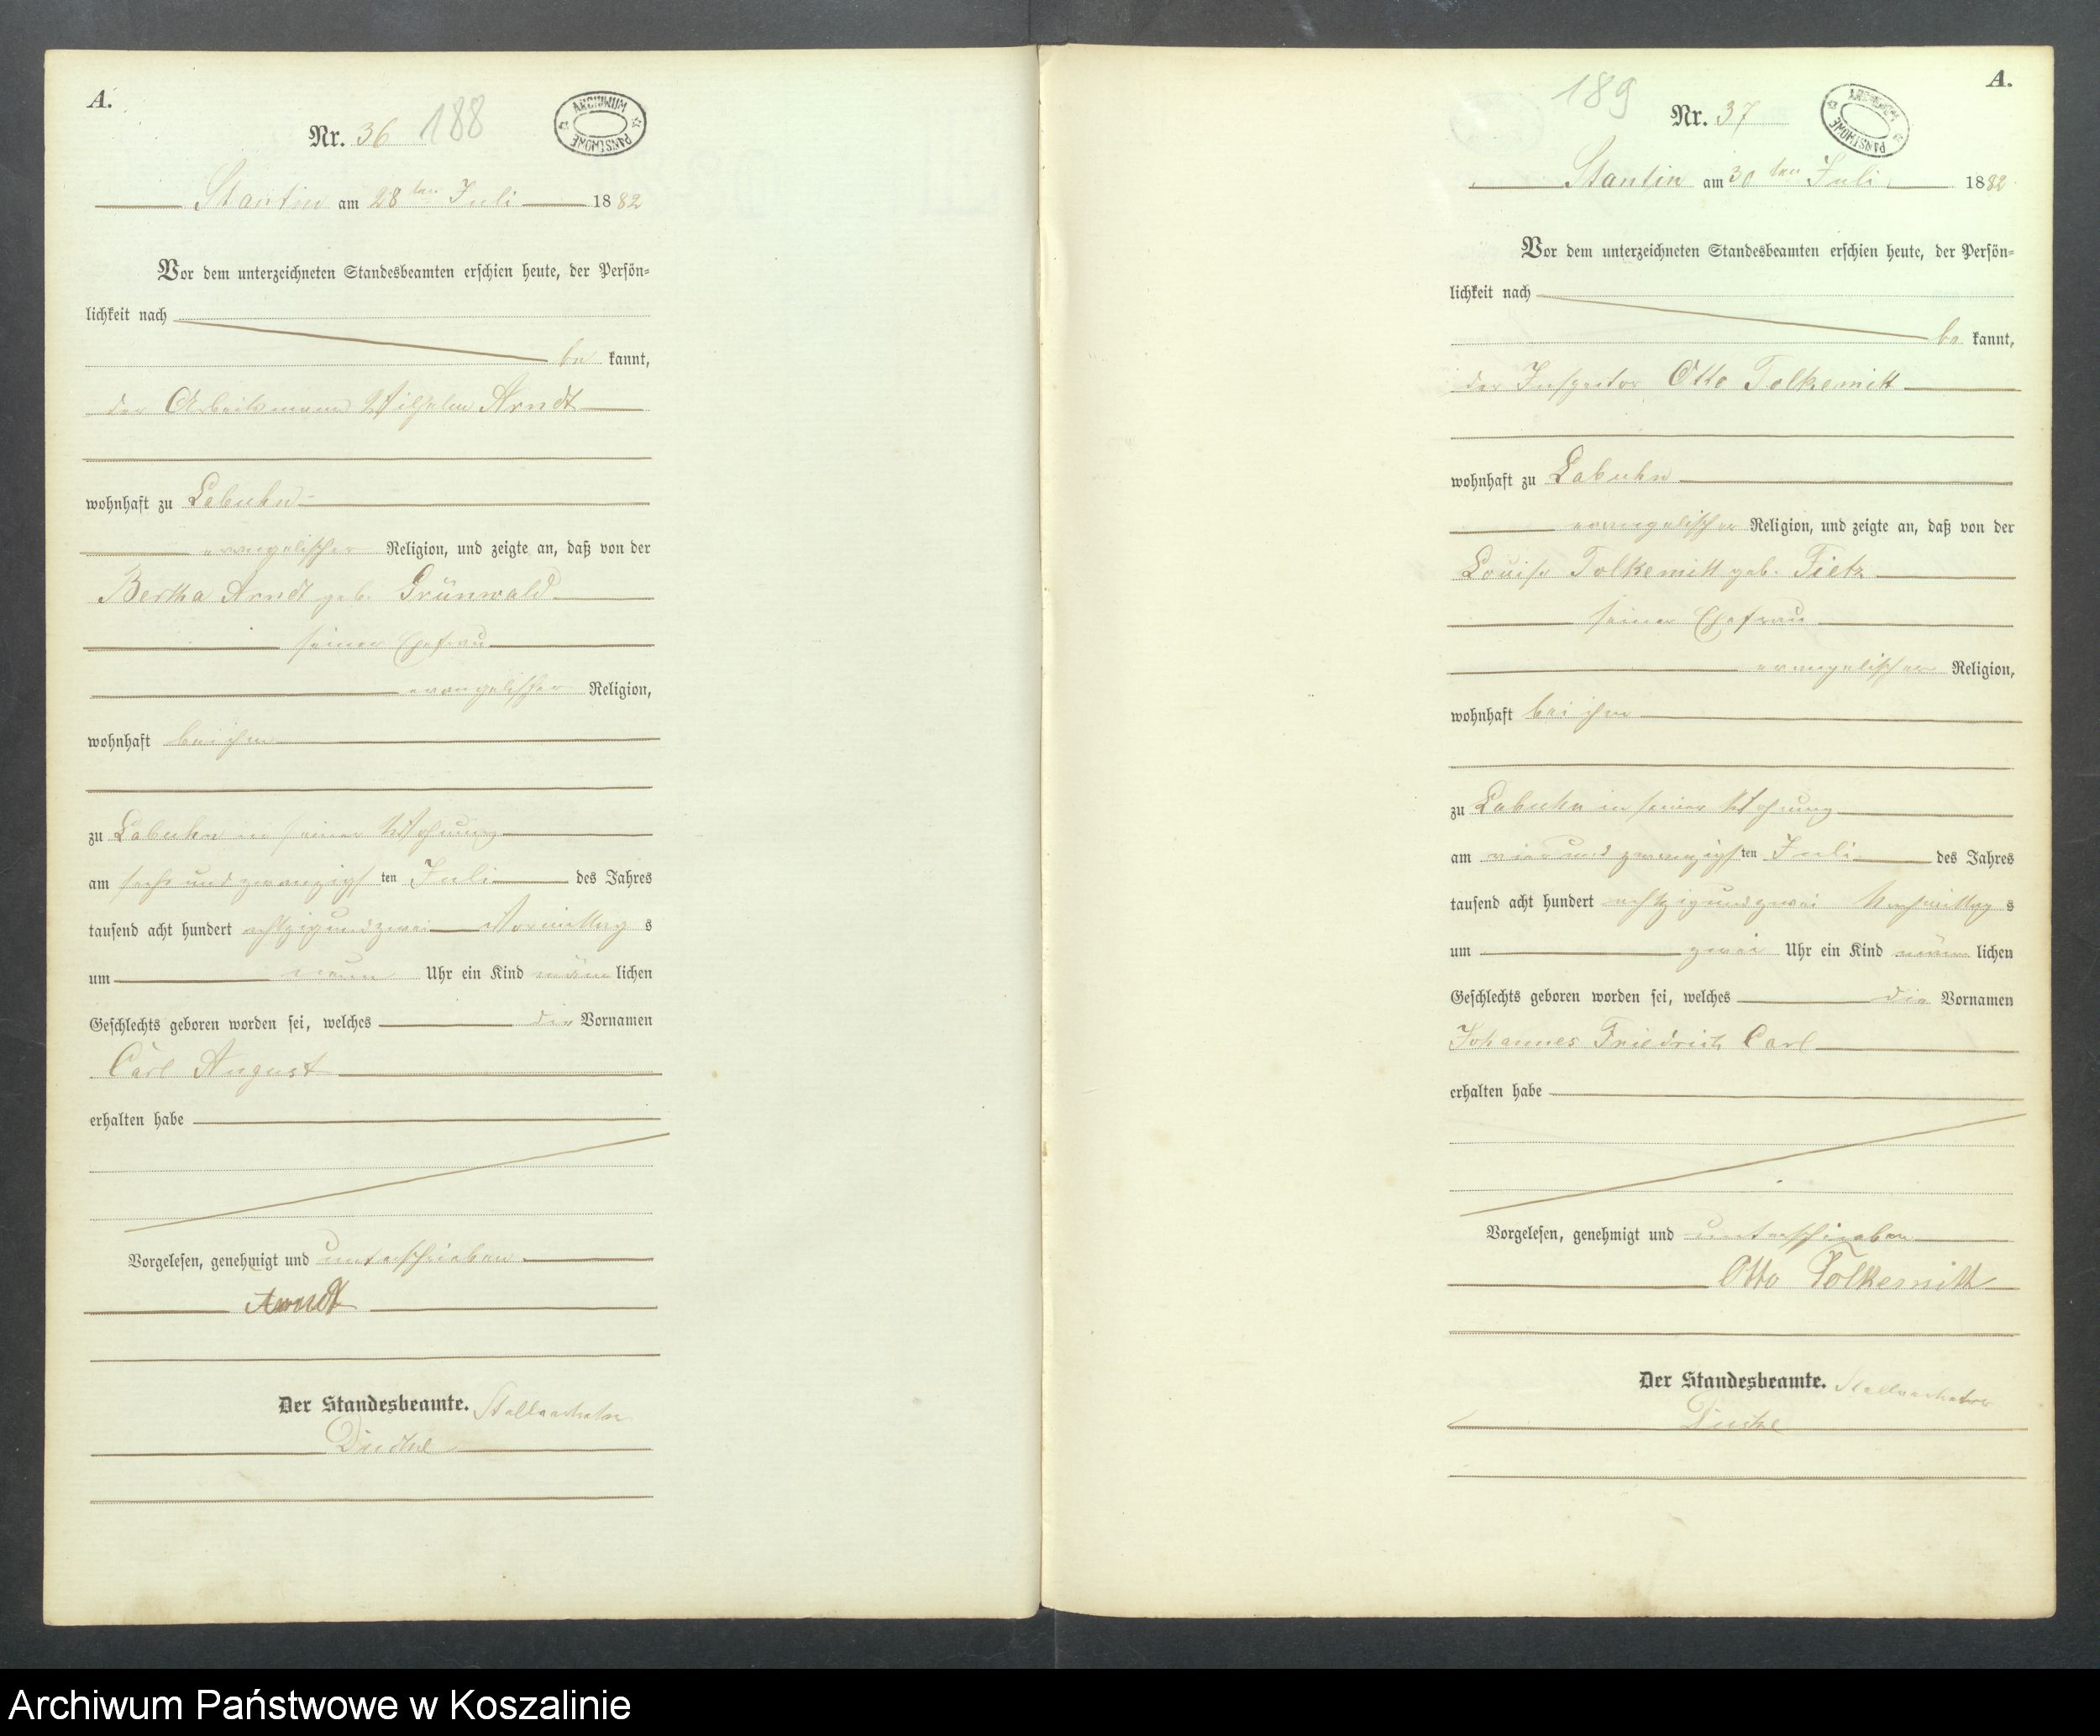 A.
Nr. 36 188
ARCHIWUM PAŃSTWOWE
Stantin am 28ten Juli 1882
Vor dem unterzeichneten Standesbeamten erschien heute, der Persön-
lichkeit nach
be kannt,
der Arbeitsmann Wilhelm Arndt
wohnhaft zu Labuhn
evangelischer Religion, und zeigte an, daß von der
Bertha Arndt geb. Grünwald
seiner Ehefrau
evangelischer Religion,
wohnhaft bei ihm
zu Labuhn in seiner Wohnung
am sechsundzwanzigsten Juli des Jahres
tausend acht hundert achtzigundzwei Vormittags
um neun Uhr ein Kind männlichen
Geschlechts geboren worden sei, welches die Vornamen
Carl August
erhalten habe
Vorgelesen, genehmigt und unterschrieben
Arndt
Der Standesbeamte.

A.
189
Nr. 37
ARCHIWUM PAŃSTWOWE
Stantin am 30ten Juli 1882
Vor dem unterzeichneten Standesbeamten erschien heute, der Persön-
lichkeit nach
be kannt,
der Inspector Otto Tolkemitt
wohnhaft zu Labuhn
evangelischer Religion, und zeigte an, daß von der
Louise Tolkemitt geb. Tietz
seiner Ehefrau
evangelischer Religion,
wohnhaft bei ihm
zu Labuhn in seiner Wohnung
am vierundzwanzigsten Juli des Jahres
tausend acht hundert achtzigundzwei Nachmittags
um zwei Uhr ein Kind männlichen
Geschlechts geboren worden sei, welches die Vornamen
Johannes Friedrich Carl
erhalten habe
Vorgelesen, genehmigt und unterschrieben
Otto Tolkemitt
Der Standesbeamte.
Archiwum Państwowe w Koszalinie